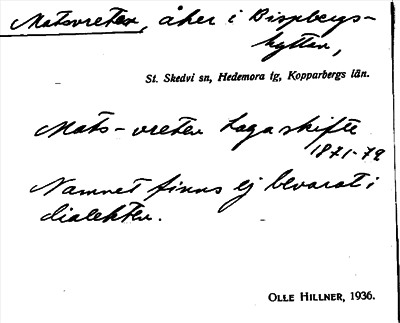 Matsvreten, åker i Bispbergs-
hyttan,
St. Skedvi sn, Hedemora tg, Kopparbergs län.
Mats-vreten Laga skifte
1871-79
Namnet finns ej bevarat i
dialekten.
OLLE HILLNER, 1936.